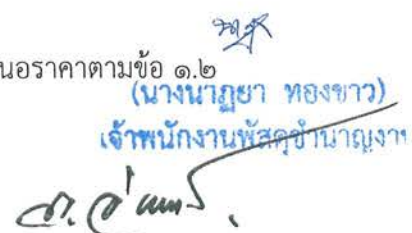 นอราคาตามข้อ ๑.๒
(นางนาฏยา ทองขาว)
เจ้าพนักงานพัสดุชำนาญงาน